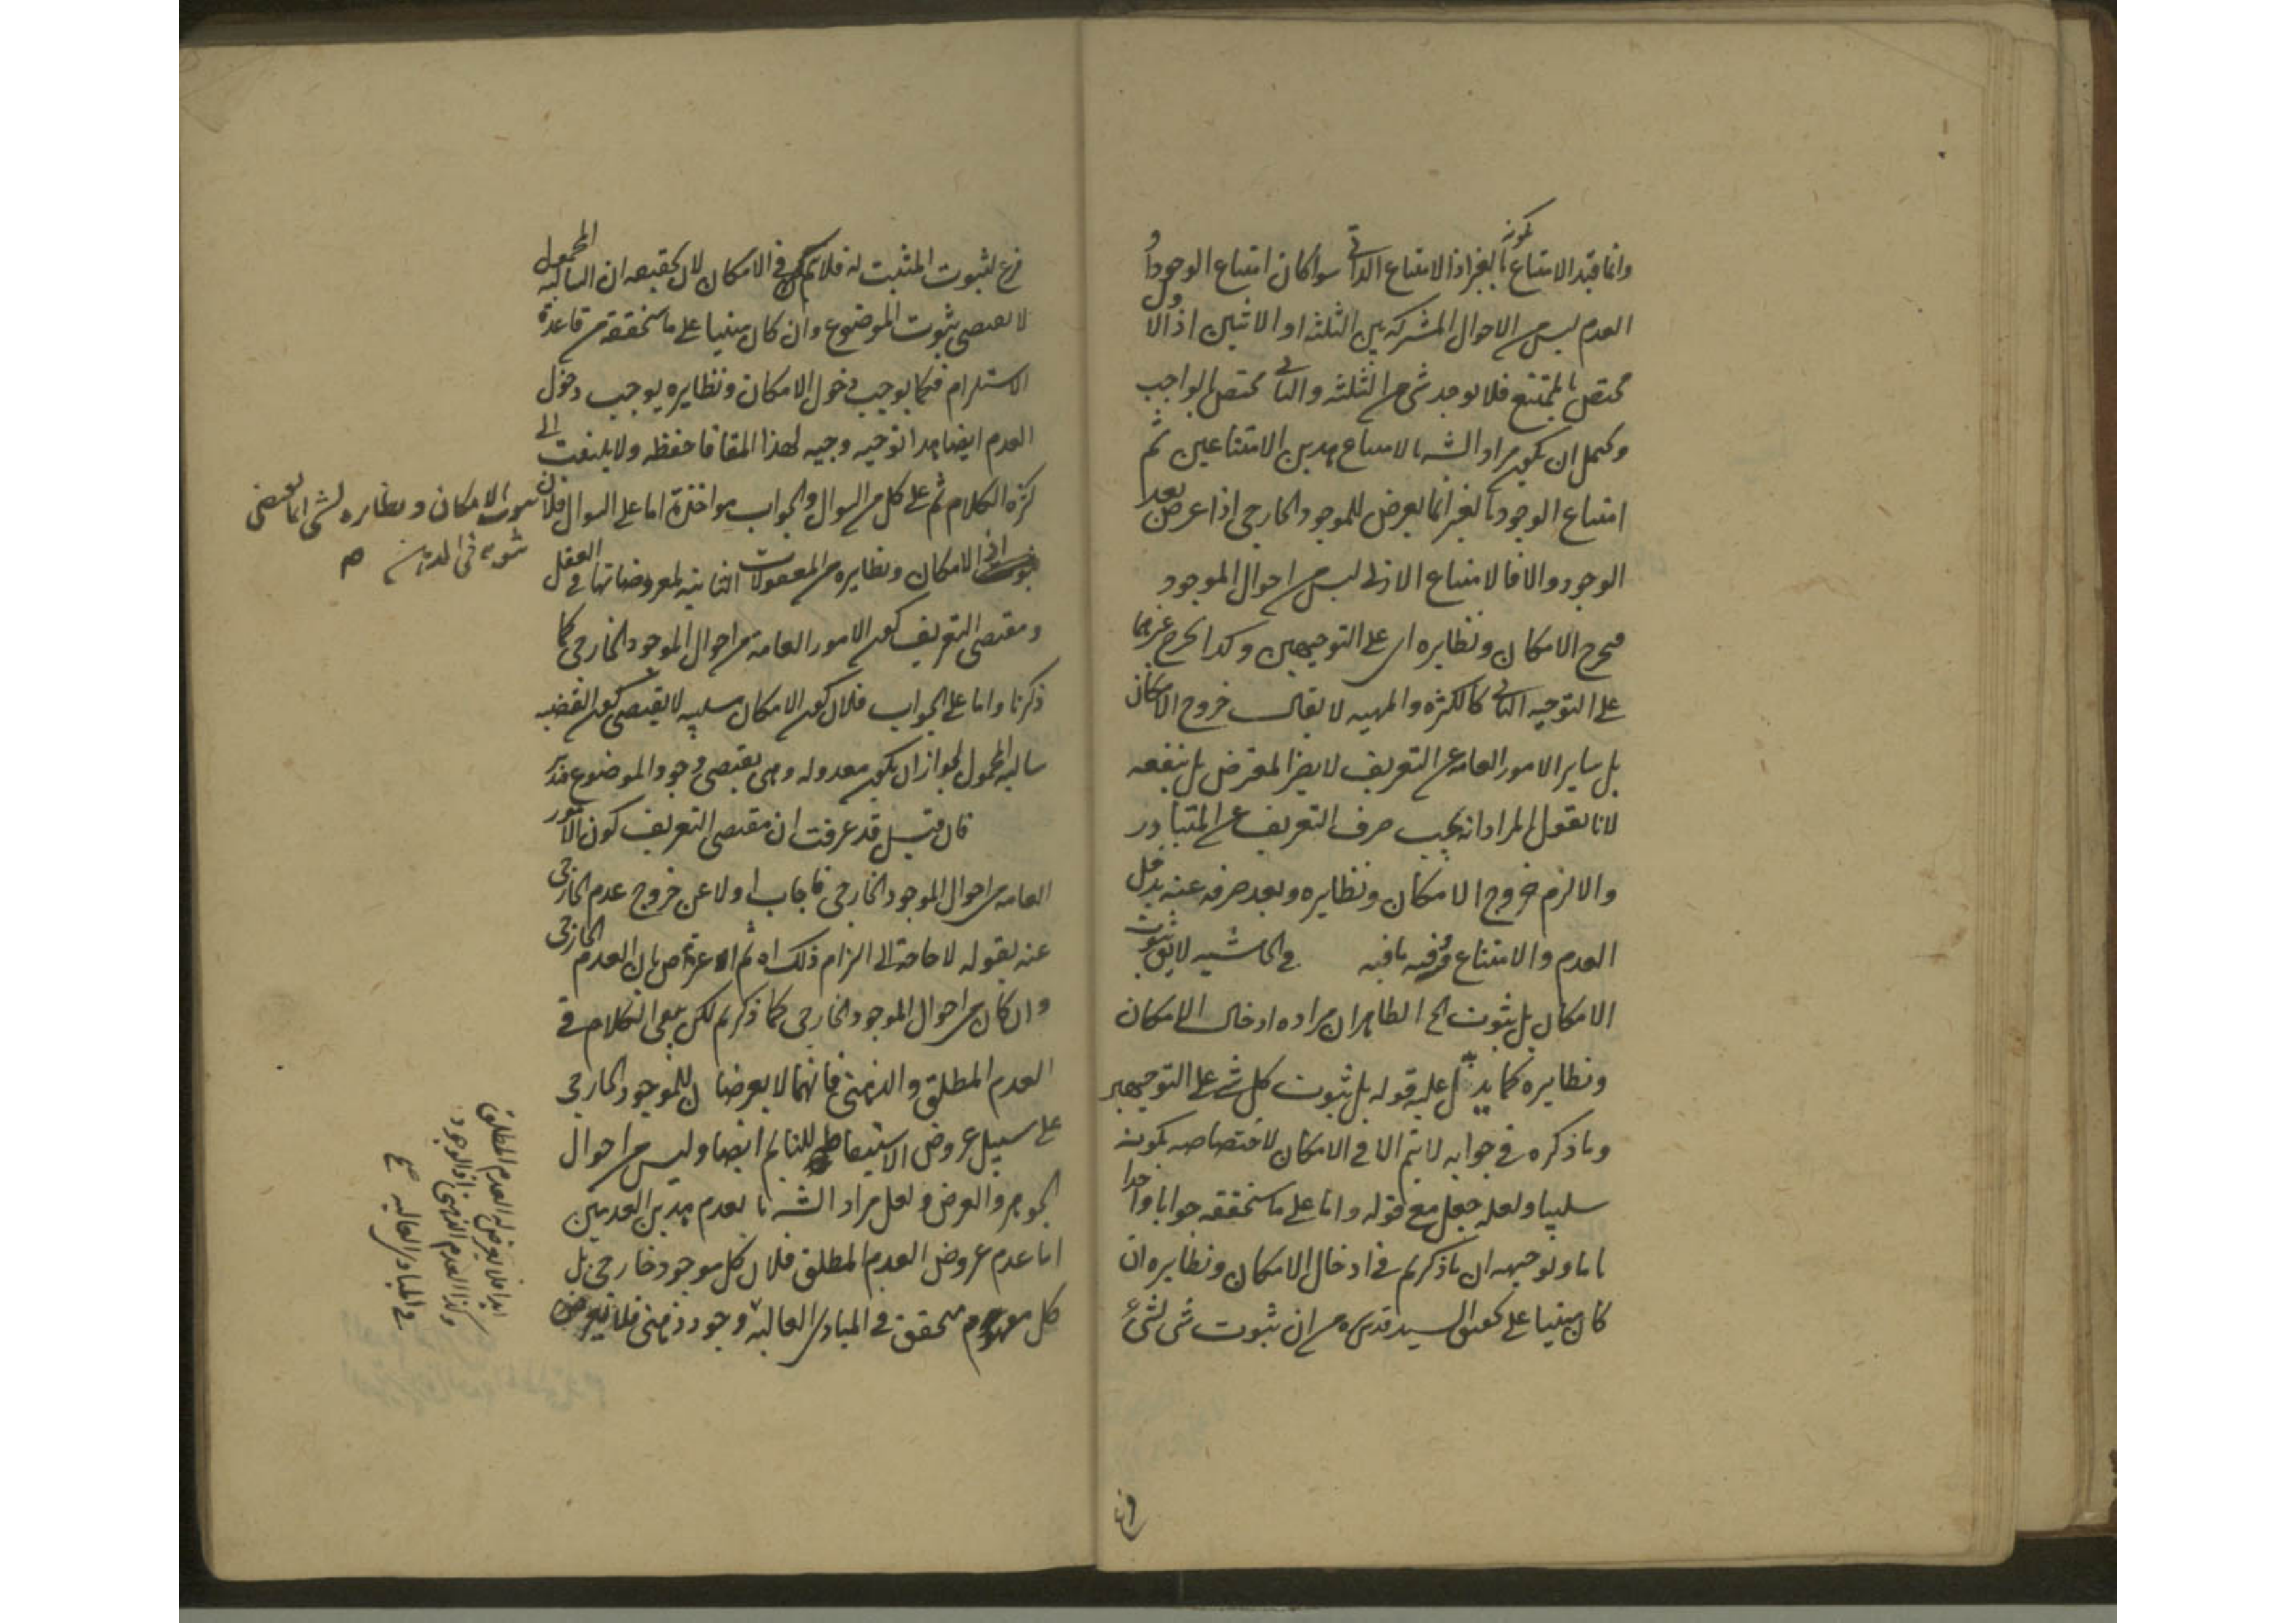 وانما قيد الامتناع بكونه بالغير اذ الامتناع الذاتي سواء كان امتناع الوجود او
العدم ليس من الاحوال المشتركة بين الثلثة او الاثنين اذ الاول
مختص بالممتنع فلا يوجد شئ من الثلثة والثاني مختص بالواجب
ويحتمل ان يكون مراد الشه بالامتناع هذين الامتناعين ثم
امتناع الوجود بالغير انما يعرض للموجود الخارجي اذا عرض بعد
الوجود والا فالامتناع الازلي ليس من احوال الموجود
فيخرج الامكان ونظايره اي على التوجيهين وكذا يخرج غيرهما
على التوجيه الثاني كالكثرة والمهية لا يقال خروج الامكان
بل ساير الامور العامة عن التعريف لا يضر المعترض بل ينفعه
لانا نقول المراد انه يجب صرف التعريف عن المتبادر
والا لزم خروج الامكان ونظايره وبعد صرفه عنه يدخل
العدم والامتناع وفيه ما فيه في الحاشيه لا يق ثبوت
الامكان بل ثبوت الخ الظاهر ان مراده ادخال الامكان
ونظايره كما يدل عليه قوله بل ثبوت كل شئ على التوجيهين
وما ذكره في جوابه لا يتم الا في الامكان لاختصاصه بكونه
سلبيا ولعله جعل مع قوله واما على ما سنحققه جوابا واحدا
تاما وتوجيهه ان ما ذكرتم في ادخال الامكان ونظايره ان
كان مبنيا على تحقيق السيد قدس سره من ان ثبوت شئ لشئ
فرع لثبوت المثبت له فلا يتم في الامكان لان تحقيقه ان السالبة المحمول
لا يقتضي ثبوت الموضوع وان كان مبنيا على ما سنحققه من قاعدة
الاستلزام فكما يوجب دخول الامكان ونظايره يوجب دخول
العدم ايضا هذا توجيه وجيه لهذا المقام فاحفظه ولا يلتفت الى
كثرة الكلام ثم على كل من السوال والجواب مواخذة اما على السوال فلان
ثبوت الامكان ونظايره لشئ انما يقتضي
ثبوته في الذهن صح
اذ الامكان ونظايره من المعقولات الثانيه لمعروضاتها في العقل
ومقتضى التعريف كون الامور العامة من احوال الموجود الخارجي كما
ذكرنا واما على الجواب فلان كون الامكان سلبيه لا يقتضي كون القضيه
سالبه المحمول لجواز ان يكون معدوله وهي يقتضي وجود الموضوع فتدبر
قال قيل قد عرفت ان مقتضى التعريف كون الامور
العامه من احوال الموجود الخارجي فاجاب اولا عن خروج عدم الخارجي
عنه بقوله لا حاجة الى التزام ذلك اه ثم اعترض بان العدم الخارجي
وان كان من احوال الموجود الخارجي كما ذكرتم لكن بقي الكلام في
العدم المطلق والذهني فانهما لا يعرضان للموجود الخارجي
على سبيل عروض الاستيقاظ للنايم ايضا وليس من احوال
الجوهر والعرض ولعل مراد الشه بالعدم هذين العدمين
اما عدم عروض العدم المطلق فلان كل موجود خارجي بل
كل مفهوم متحقق في المبادي العاليه وجود ذهني فلا يعرض
ابدا فلا يعرض له العدم المطلق
وكذا العدم الذهني اذ الوجود
في المبادي العاليه صح